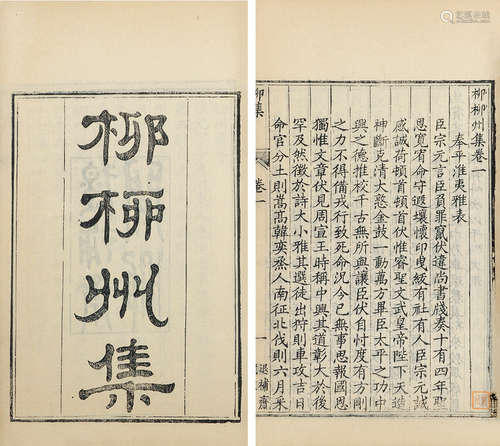 柳柳州集
柳柳州集卷一
奉平淮夷雅表
臣宗元言臣負罪竄伏違尚書牋奏十有四年聖
恩寬宥命守遐壤懷印曳紱有社有人臣宗元誠
感誠荷頓首頓首伏惟睿聖文武皇帝陛下天造
神斷克清大憝金鼓一動萬方畢臣太平之功中
興之德推校千古無所與讓臣伏自忖度有方剛
之力不得備戎行致死命況今已無事思報國恩
獨惟文章伏見周宣王時稱中興其道彰大於後
罕及然徵於詩大小雅其選徒出狩則車攻吉日
命官分土則嵩高韓奕烝人南征北伐則六月采
柳集
卷一
一
退補齋